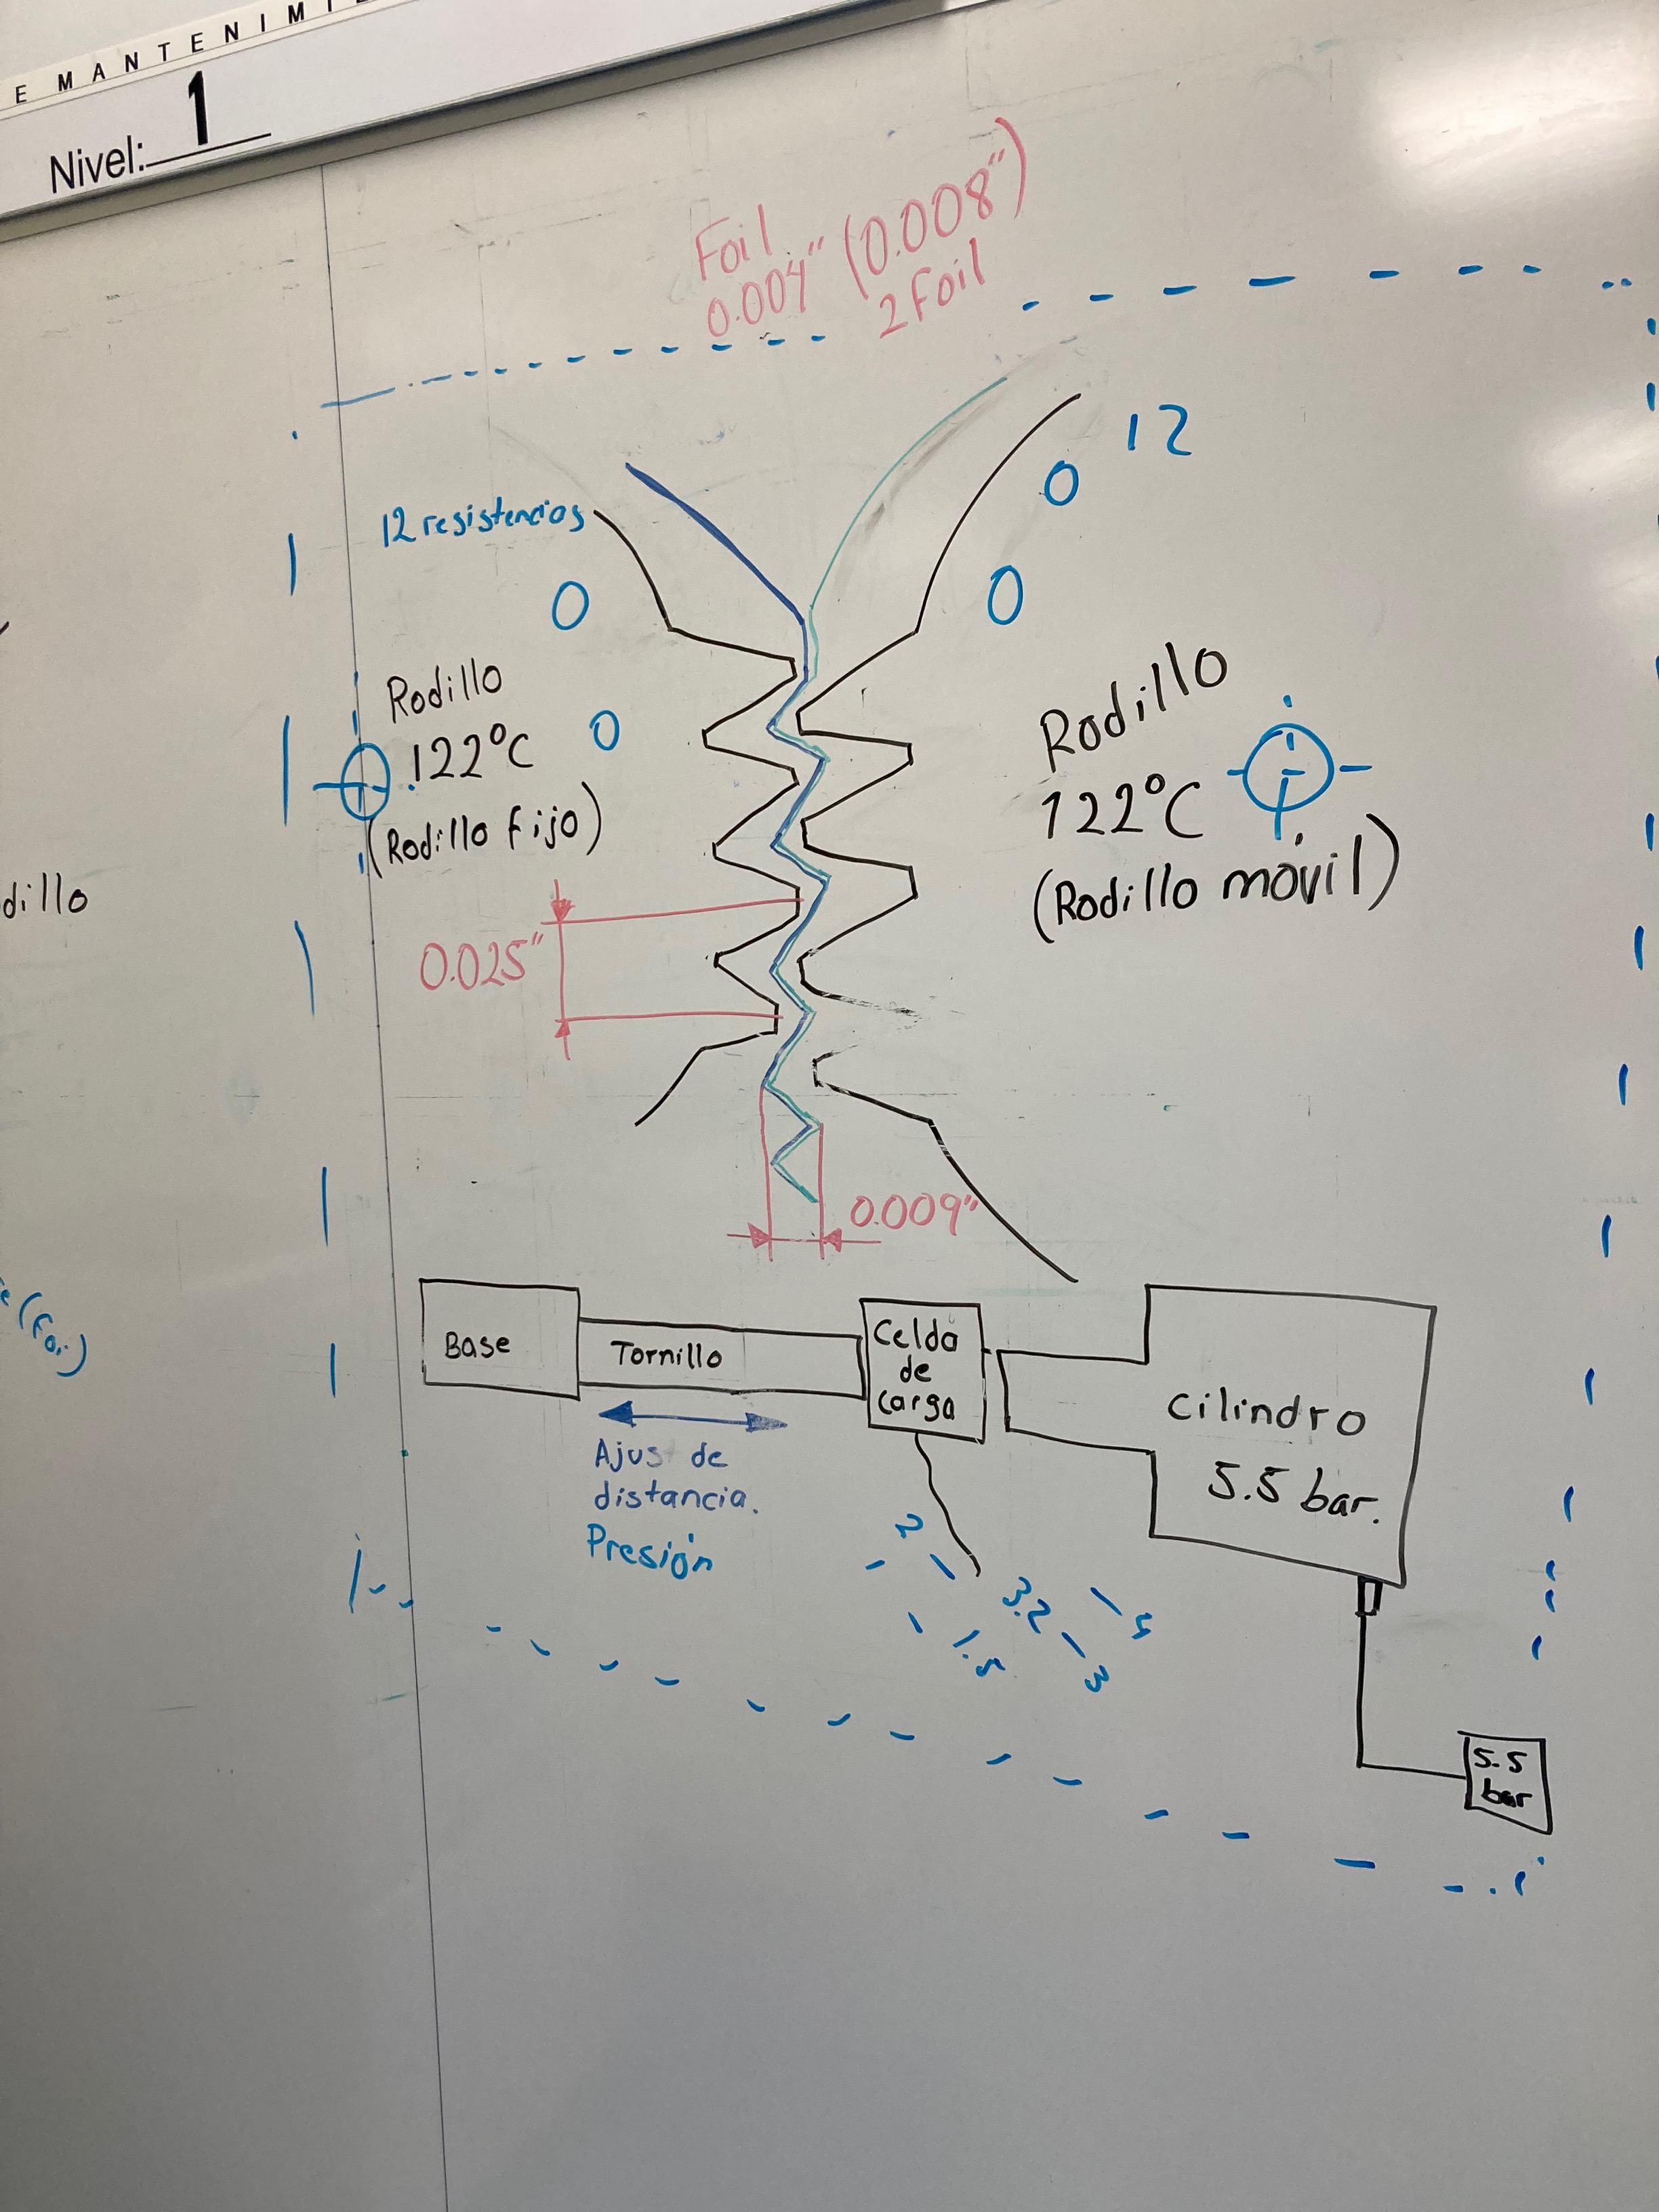 E MANTENIMI
Nivel: 1
Foil
0.004" (0.008")
2 Foil
12
0
12 resistencias
0
0
Rodillo
122°C
0
(Rodillo fijo)
Rodillo
122°C
(Rodillo móvil)
dillo
0.025"
0.009"
Base
Tornillo
Celda
de
carga
cilindro
5.5 bar.
Ajus de
distancia.
Presión
2
3.2
5
1.5
3
5.5
bar